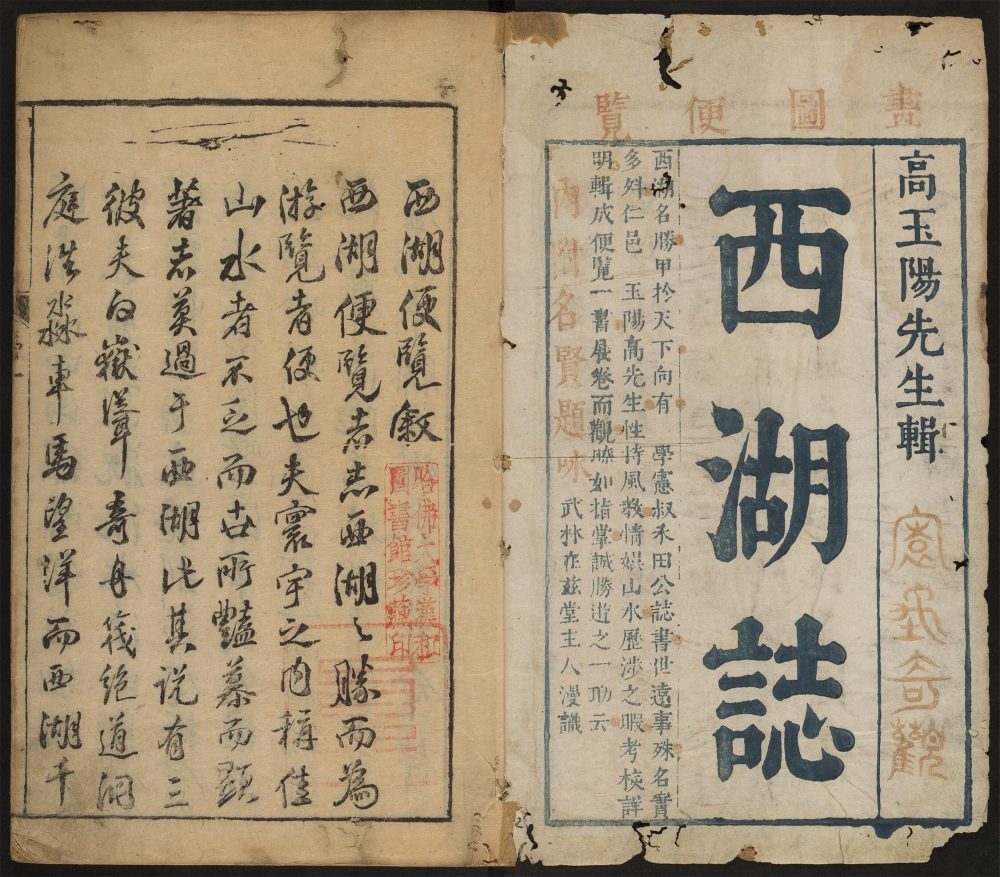 畫圖便覽
高玉陽先生輯
奇觀
西湖誌
西湖名勝甲於天下向有 學憲叔禾田公誌書世遠事殊名實
多舛仁邑 玉陽高先生性持風教情娛山水歷涉之暇考核詳
明輯成便覽一書展卷而觀瞭如指掌誠勝遊之一助云
武林在茲堂主人漫識
內附名賢題咏
西湖便覽敘
西湖便覽者志西湖之勝而為
游覽者便也夫寰宇之內稱佳
山水者不乏而古所豔慕而顯
著者莫過于西湖此其說有三
彼夫五嶽聳奇舟筏絕道洞
庭浩淼車馬望洋而西湖千
哈佛大學漢和
圖書館珍藏印